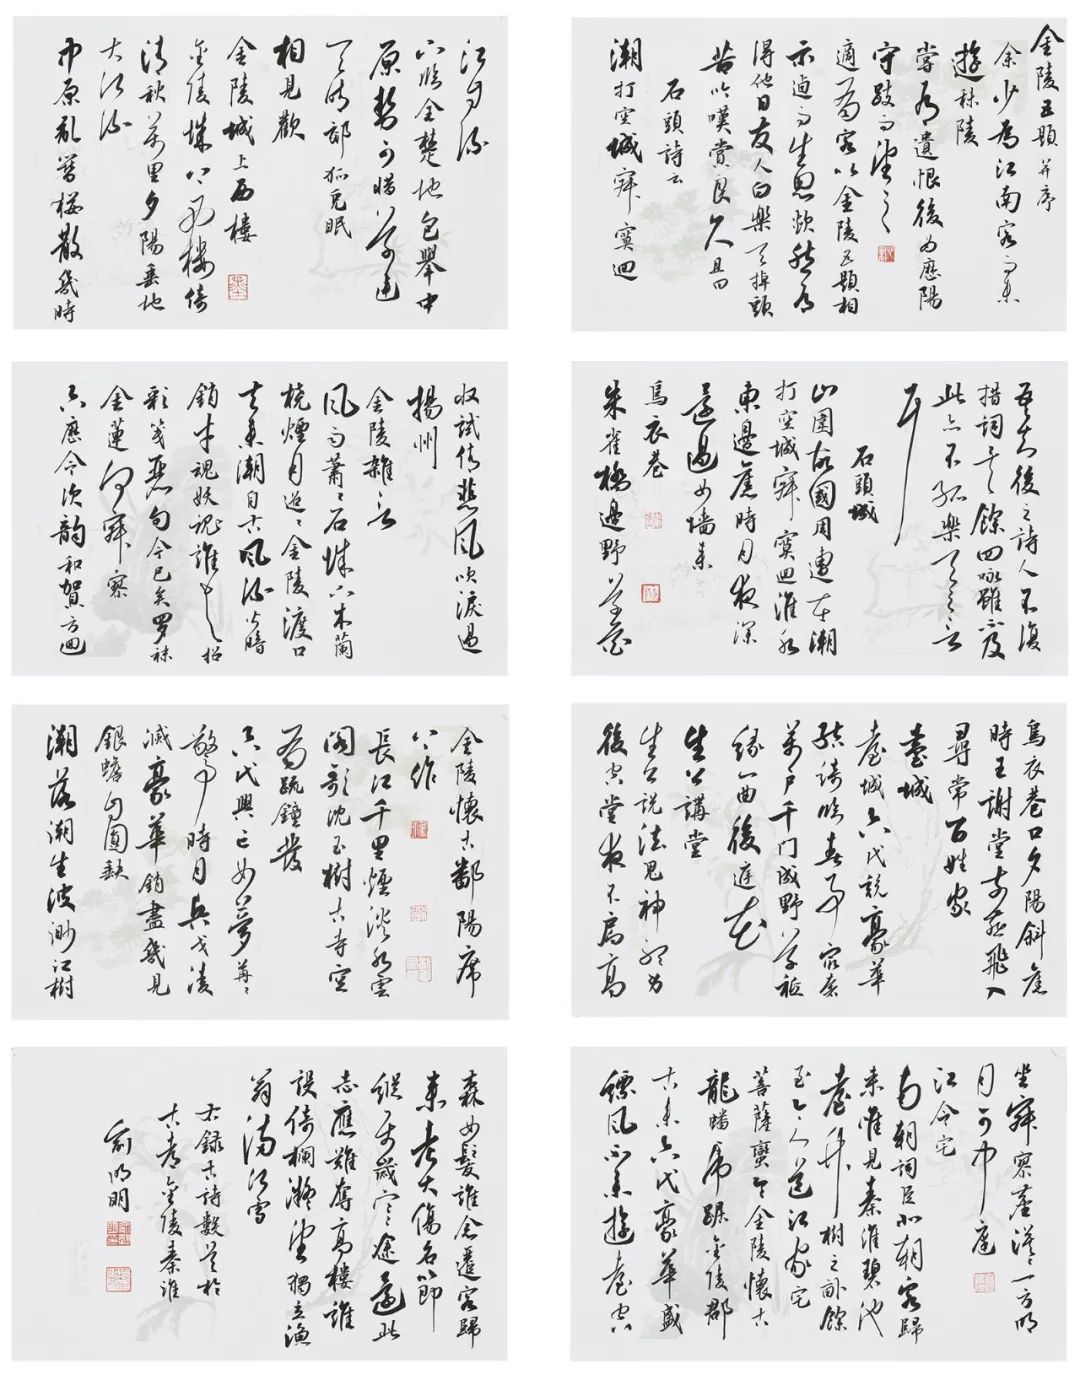 金陵五題并序
余少為江南客而未
遊秣陵
嘗有遺恨後為歷陽
守跂而望之
適有客以金陵五題相
示逌而生思欻然有
得他日友人白樂天掉頭
苦吟嘆賞良久且曰
石頭詩云
潮打空城寂寞迴
吾知後之詩人不復
措詞矣餘四詠雖不及
此亦不孤樂天之言
耳
石頭城
山圍故國周遭在潮
打空城寂寞迴淮水
東邊舊時月夜深
還過女墻來
烏衣巷
朱雀橋邊野草花
烏衣巷口夕陽斜舊
時王謝堂前燕飛入
尋常百姓家
臺城
臺城六代競豪華
結綺臨春事最奢
萬戶千門成野草衹
緣一曲後庭花
生公講堂
生公說法鬼神聽身
後空堂夜不扃高
坐寂寥塵漠漠一方明
月可中庭
江令宅
南朝詞臣北朝客歸
來唯見秦淮碧池
臺竹樹三畝餘
至今人道江家宅
菩薩蠻金陵懷古
龍蟠虎踞金陵郡
古來六代豪華盛
縹風不來遊臺空
江自流
下臨全楚地包舉中
原勢可惜草連
天晴郊狐兔眠
相見歡
金陵城上西樓
金陵城上西樓倚
清秋萬里夕陽垂地
大江流
中原亂簪纓散幾時
收試倩悲風吹淚過
揚州
金陵雜言
風雨蕭蕭石城下木蘭
橈煙月迢迢金陵渡口
去來潮自古風流皆暗
銷才魂妖魂誰與招
彩箋麗句今已矣羅袜
金蓮何寂寥
六應令次韻和賀方回
金陵懷古鄱陽席
上作
長江千里煙淡水雲
闊歌沈玉樹古寺空
有疏鐘發
六代興亡如夢苒苒
驚時月兵戈凌
滅豪華銷盡幾見
銀蟾自圓缺
潮落潮生波渺江樹
森如髮誰念遷客歸
來老大傷名節
縱使歲寒途遠此
志應難奪高樓誰
設倚欄凝望獨立漁
翁滿江雪
右錄古詩數首於
古都金陵秦淮